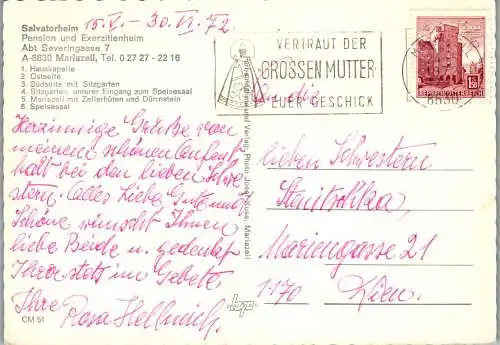 15.V. - 30.VI.72
Salvatorheim
Pension und Exerzitienheim
Abt Severingasse 7
A-8630 Mariazell, Tel. 0 27 27 - 22 16
1. Hauskapelle
2. Ostseite
3. Südseite mit Sitzgarten
4. Sitzgarten, unserer Eingang zum Speisesaal
5. Mariazell mit Zellerhüten und Dürnstein
6. Speisesaal
Herzinnige Grüße von
meinem schönen Aufent-
halt bei den lieben Schwe-
stern. Alles Liebe Gute und
Schöne wünscht Ihnen
liebe Beide u. gedenkt
Ihrer stets im Gebete
Ihre
Rosa Hellmich.
CM 51
VERTRAUT DER
GROSSEN MUTTER
EUER GESCHICK
8630
REPUBLIK ÖSTERREICH
An die
lieben Schwestern
Stanitschka,
Mariengasse 21
1170 Wien.